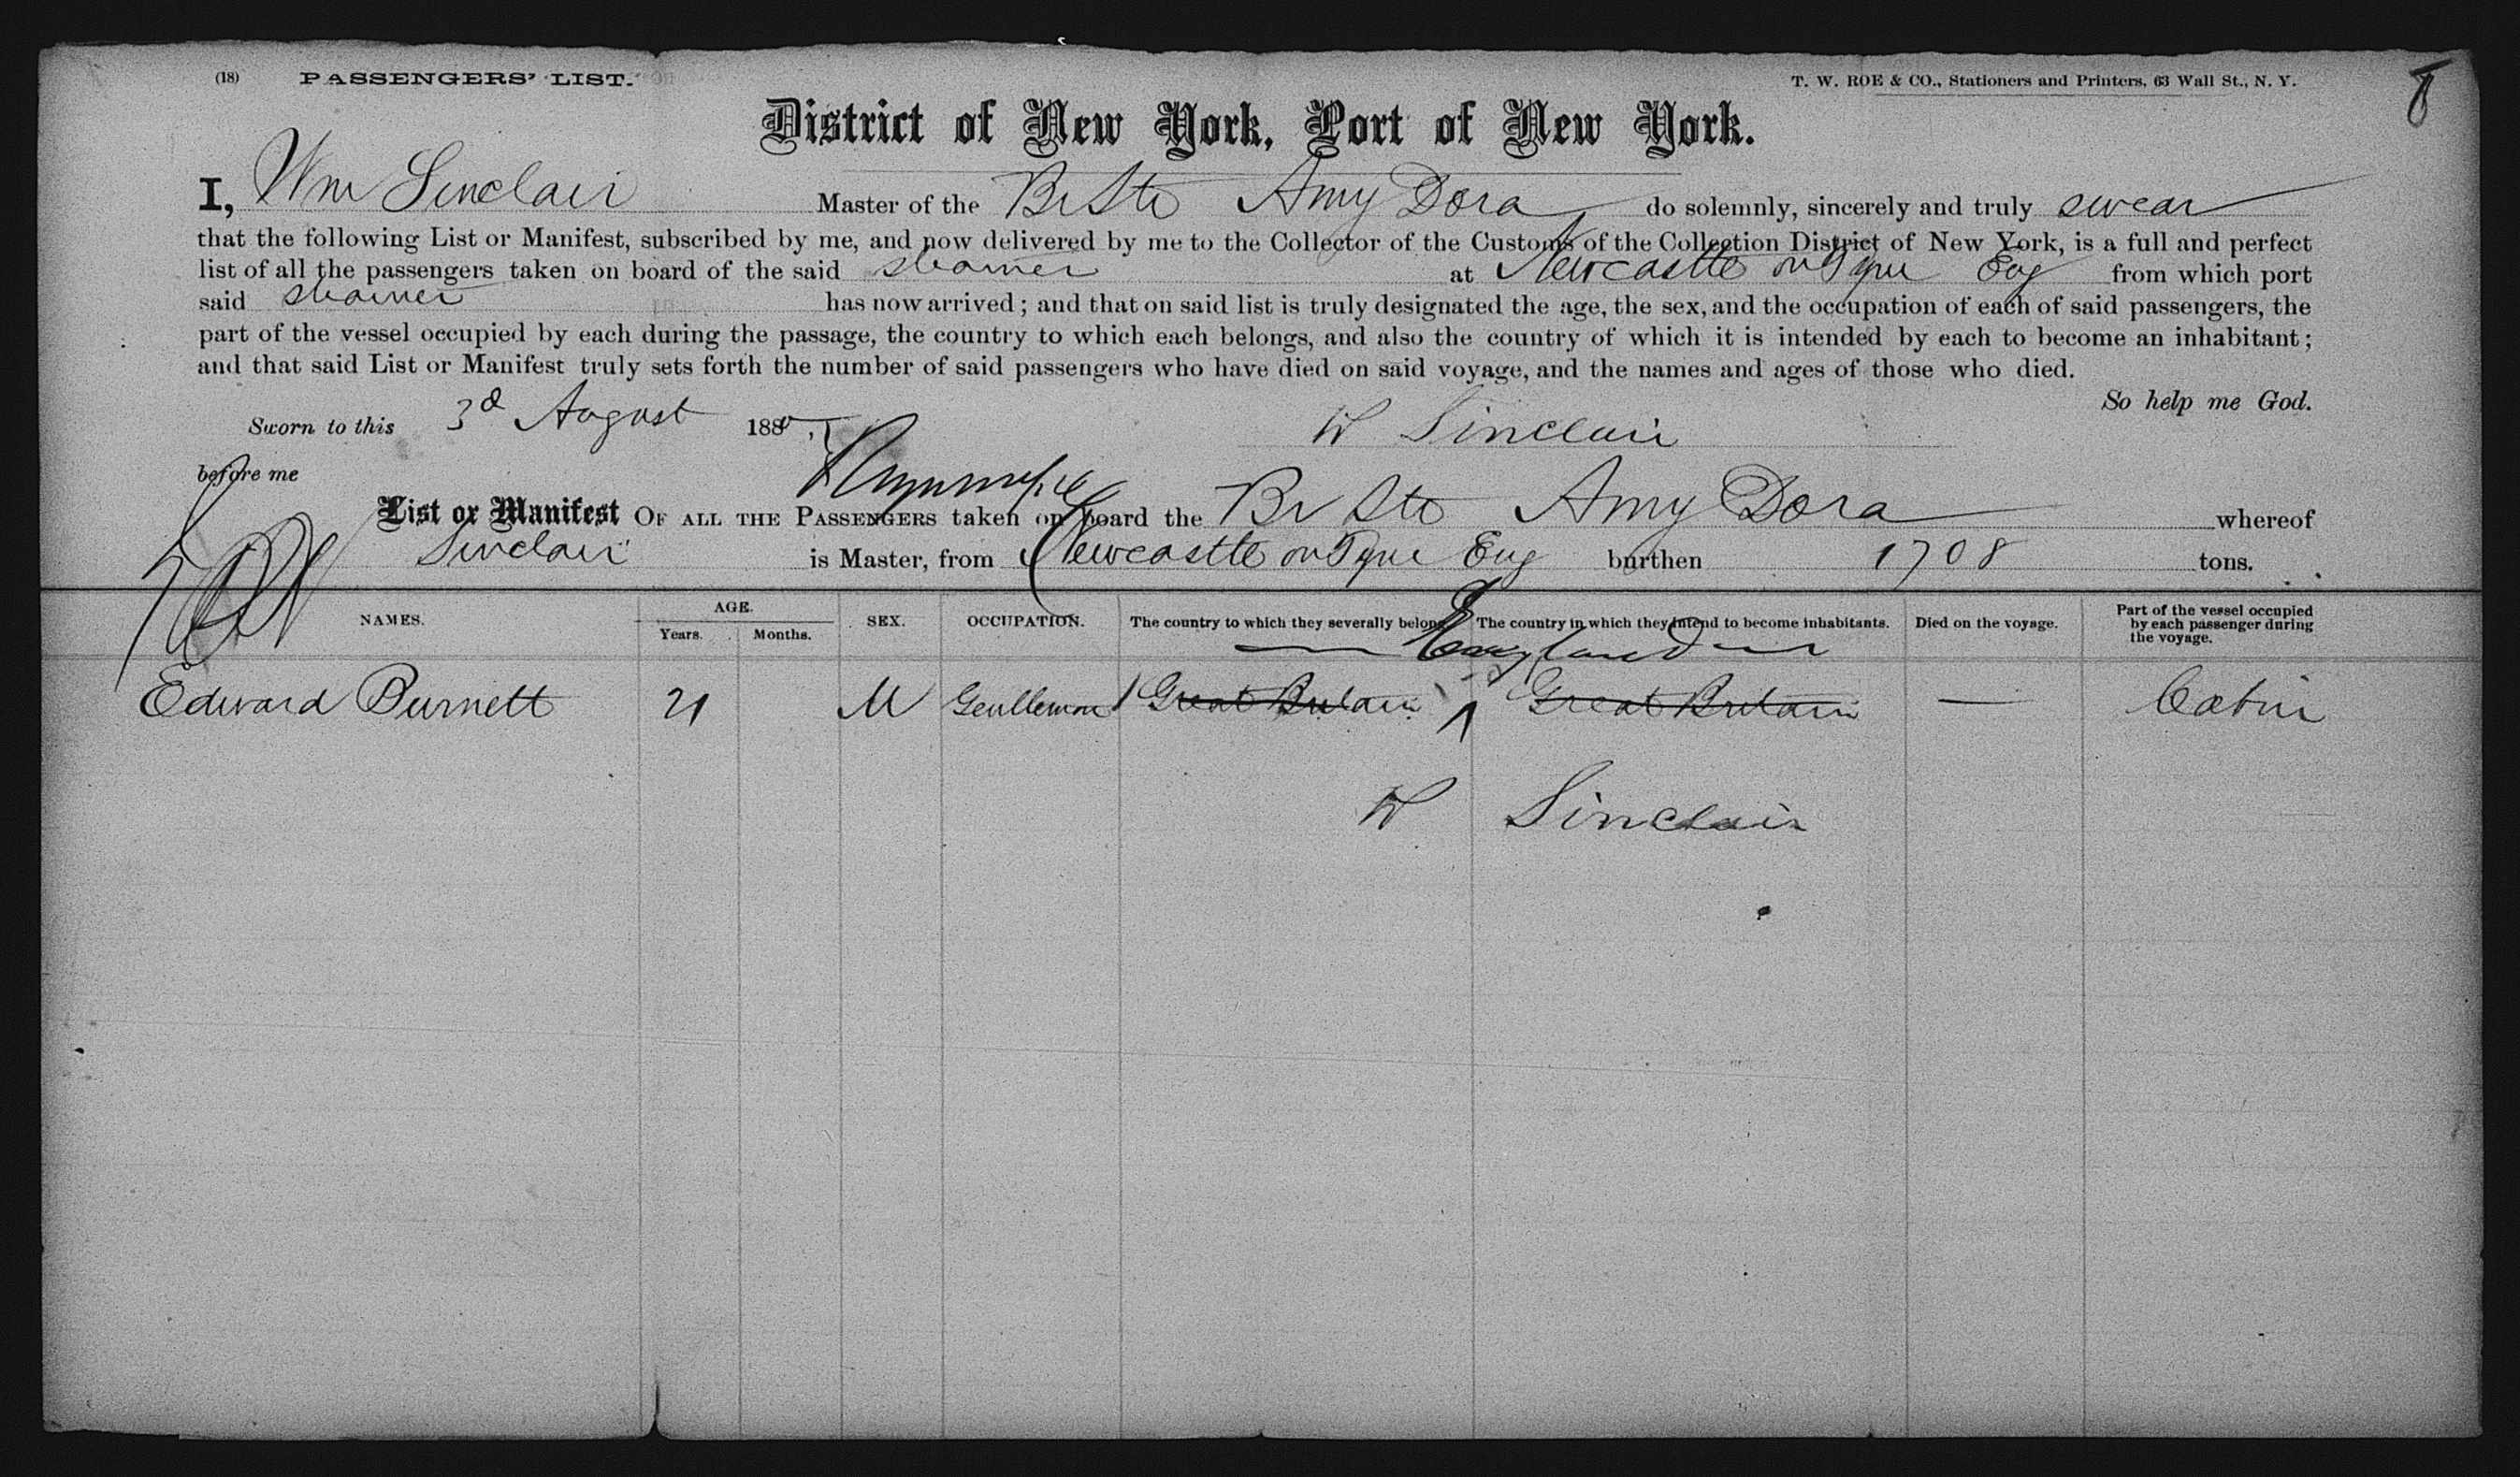 (18) PASSENGERS' LIST. T. W. ROE & CO., Stationers and Printers, 63 Wall St., N. Y. 8
District of New York, Port of New York.
I, Wm Sinclair Master of the Br Str Amy Dora do solemnly, sincerely and truly swear
that the following List or Manifest, subscribed by me, and now delivered by me to the Collector of the Customs of the Collection District of New York, is a full and perfect
list of all the passengers taken on board of the said steamer at Newcastle on Tyne Eng from which port
said steamer has now arrived; and that on said list is truly designated the age, the sex, and the occupation of each of said passengers, the
part of the vessel occupied by each during the passage, the country to which each belongs, and also the country of which it is intended by each to become an inhabitant;
and that said List or Manifest truly sets forth the number of said passengers who have died on said voyage, and the names and ages of those who died.
So help me God.
Sworn to this 3d August 188 W Sinclair
before me
List or Manifest OF ALL THE PASSENGERS taken on board the Br Str Amy Dora whereof
Sinclair is Master, from Newcastle on Tyne Eng burthen 1708 tons.
NAMES. AGE. Years. Months. SEX. OCCUPATION. The country to which they severally belong. The country in which they intend to become inhabitants. Died on the voyage. Part of the vessel occupied by each passenger during the voyage.
England
Edward Burnett 21 M Gentleman Great Britain Great Britain — Cabin
W Sinclair